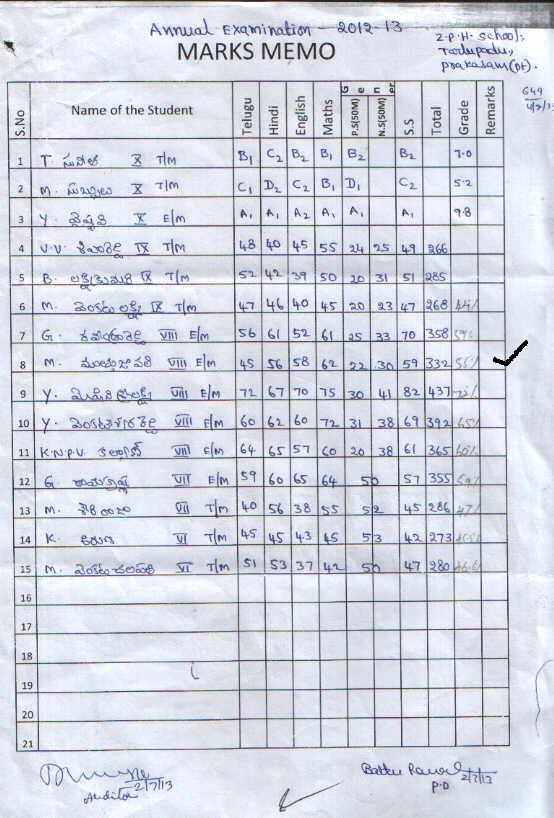 Annual Examination - 2012-13
Z.P.H. School,
MARKS MEMO
Prakasam(Dt).
649
S.No Name of the Student Telugu Hindi English Maths Gener P.S(50M) N.S(50M) S.S Total Grade Remarks
1 T. సునీత X T/M B1 C2 B2 B1 B2 B2 7.0
2 M. X T/M C1 D2 C2 B1 D1 C2 5.2
3 Y. వైష్ణవి X E/M A1 A1 A2 A1 A1 A1 9.8
4 V.V. IX T/M 48 40 45 55 24 25 49 266
5 B. లక్ష్మీకుమారి IX T/M 52 42 39 50 20 31 51 285
6 M. వెంకటలక్ష్మి IX T/M 47 46 40 45 20 23 47 268 44%
7 G. VIII E/M 56 61 52 61 25 33 70 358
8 M. VIII E/M 45 56 58 62 22 30 59 332
9 Y. VIII E/M 72 67 70 75 30 41 82 437
10 Y. VIII E/M 60 62 60 72 31 38 69 392 65%
11 K.N.P.V. కళ్యాణ్ VIII E/M 64 65 57 60 20 38 61 365 60%
12 G. VII E/M 59 60 65 64 50 57 355 59%
13 M. VII T/M 40 56 38 55 52 45 286 47%
14 K. VI T/M 45 45 43 45 53 42 273
15 M. వెంకటచలపతి VI T/M 51 53 37 42 50 47 280
16
17
18
19
20
21
2/7/13
Auditor
2/7/13
P.D